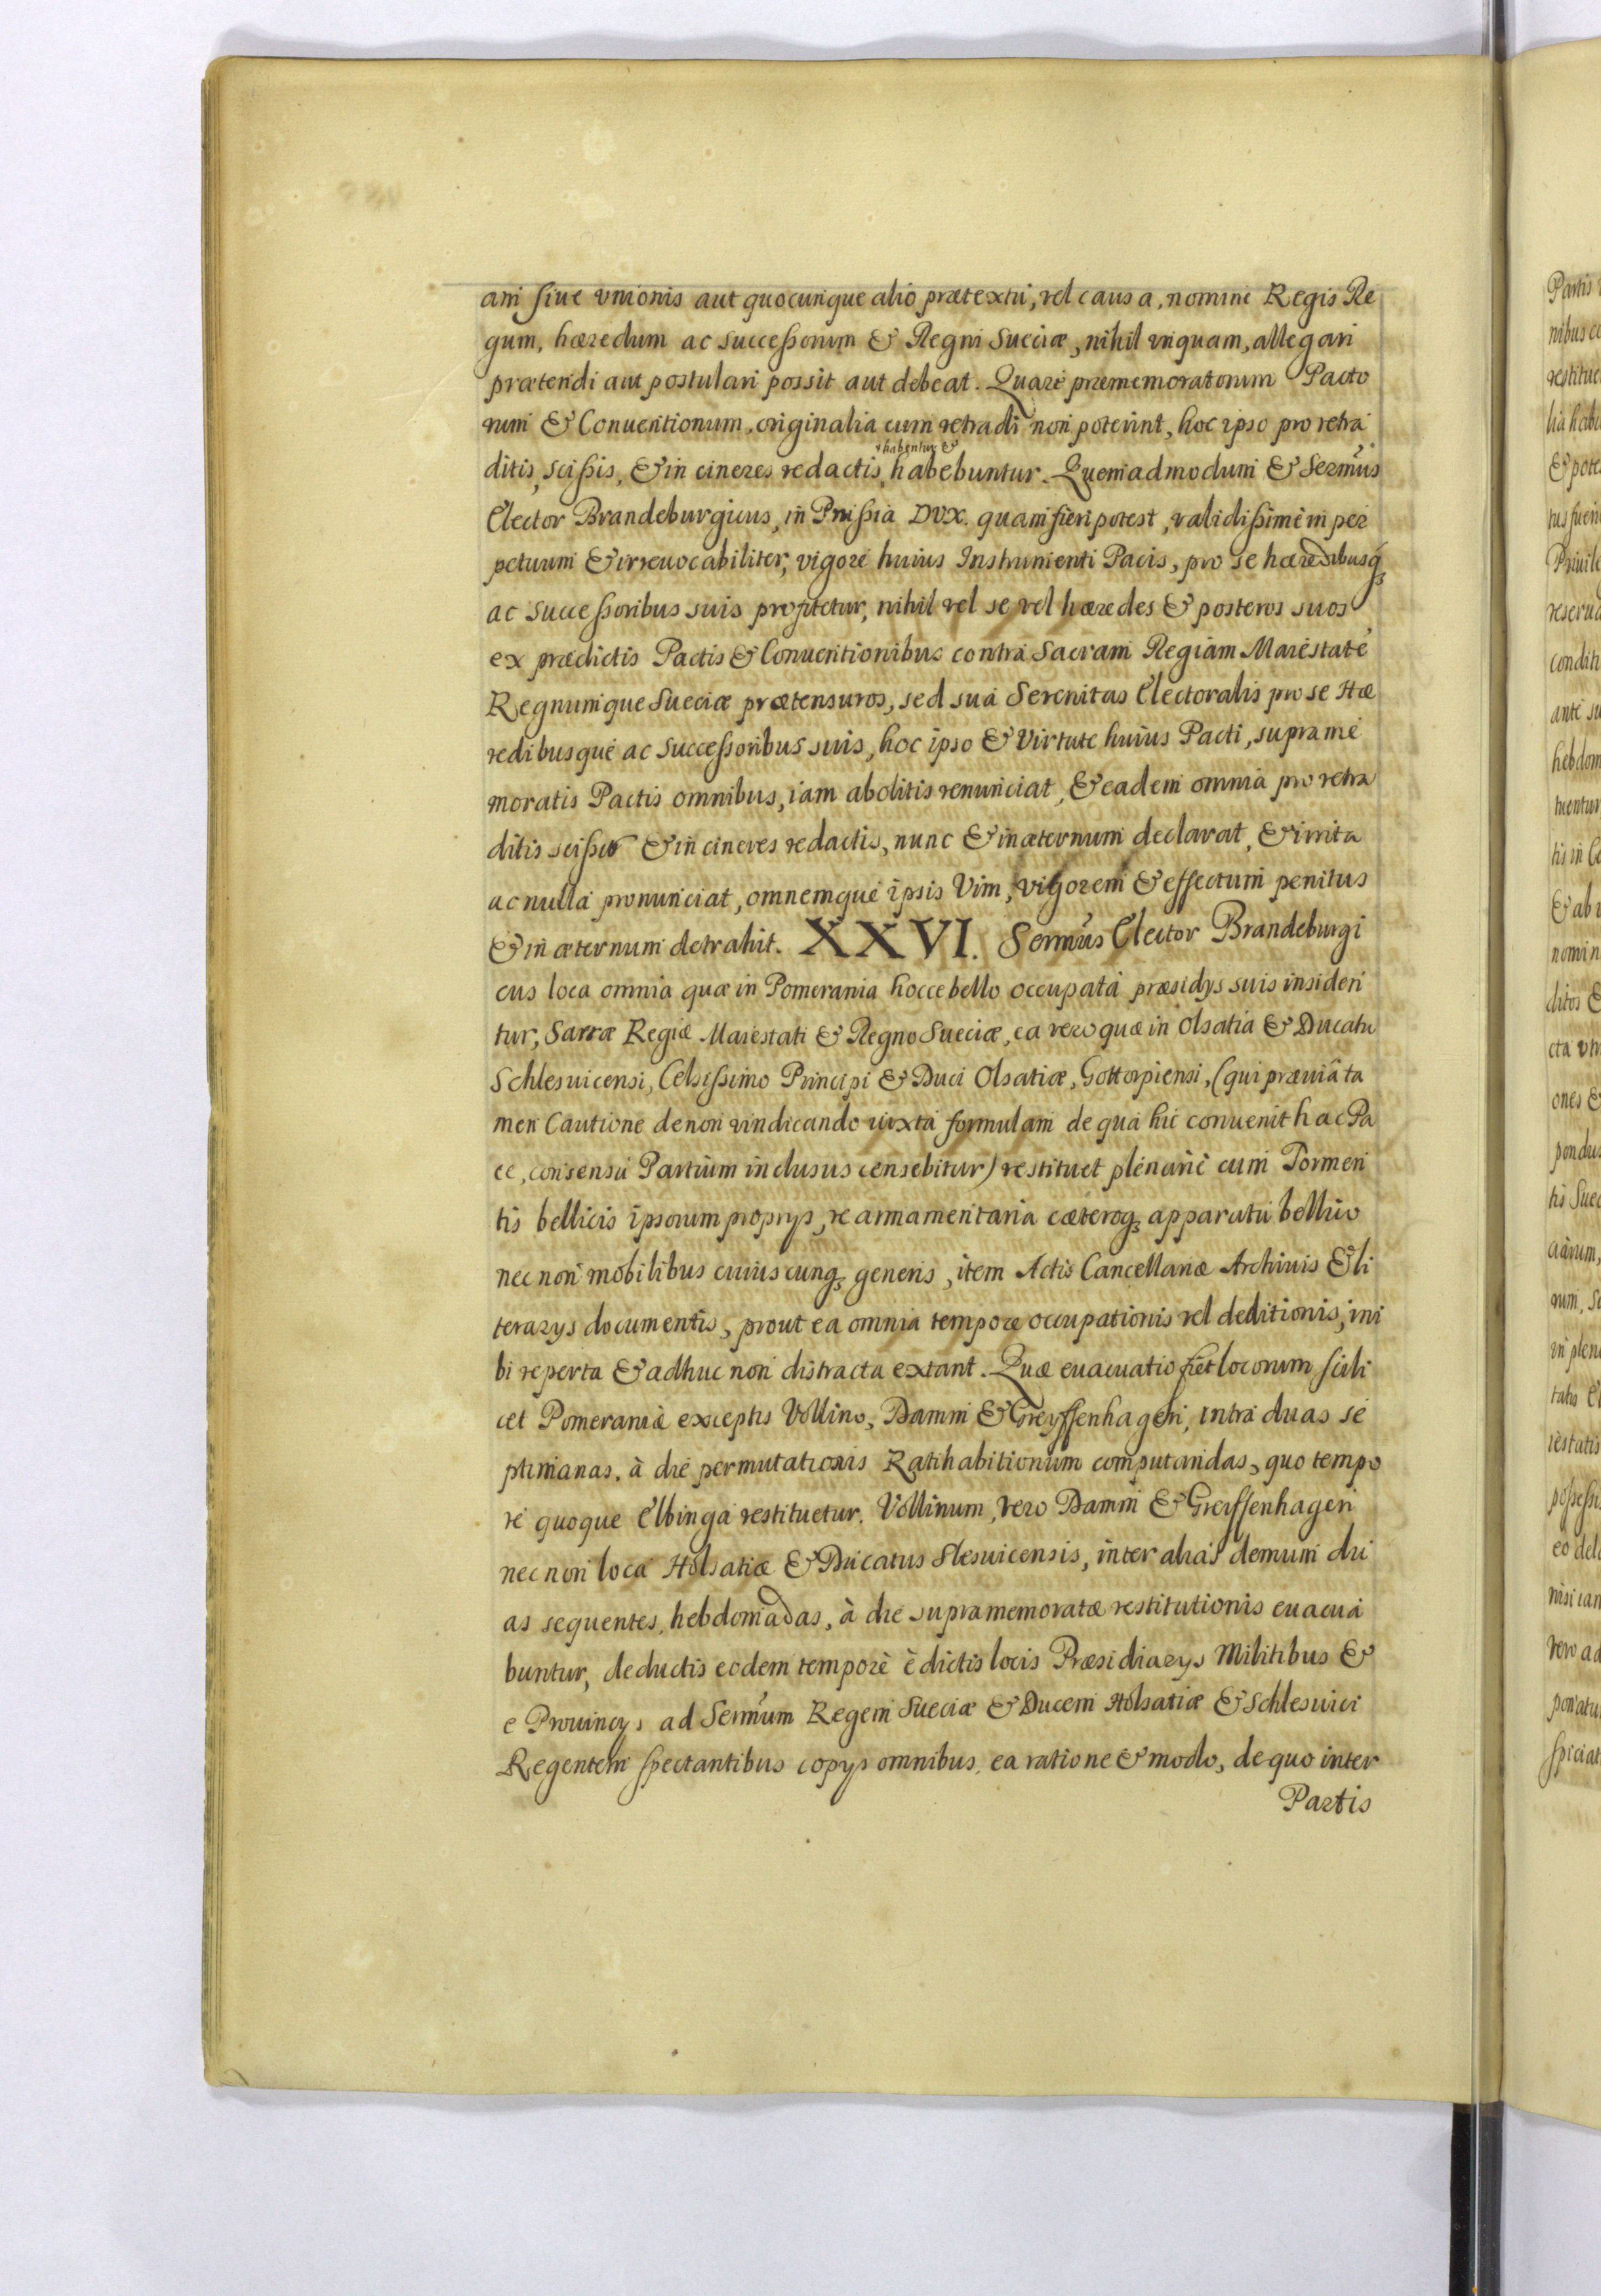 am siue vnionis aut quocunque alio prætextu, vel causa, nomine Regis Re
gum, hæredum ac successorum & Regni Sueciæ, nihil vnquam, allegari
prætendi aut postulari possit aut debeat. Quare præmemoratorum Pacto
rum & Conuentionum, originalia cum retradi non poterint, hoc ipso pro retra
habentur &
ditis, scissis, & in cineres redactis, habebuntur. Quemadmodum & Sermũs
Elector Brandeburgicus, in Prussia DVX. quam fieri potest, validissime in per
petuum & irreuocabiliter, vigore huius Instrumenti Pacis, pro se hæredibusq́3
ac successoribus suis profitetur, nihil vel se vel hæredes & posteros suos
ex prædictis Pactis & Conuentionibus contra Sacram Regiam Maiestatẽ
Regnumque Sueciæ prætensuros, sed sua Serenitas Electoralis pro se Hæ
redibusque ac successoribus suis, hoc ipso & Virtute huius Pacti, supra me
moratis Pactis omnibus, iam abolitis renunciat, & eadem omnia pro retra
ditis scissis & in cineres redactis, nunc & in æternum declarat, & irrita
ac nulla pronunciat, omnemque ipsis Vim, vigorem & effectum penitus
& in æternum detrahit. XXVI. Sermũs Elector Brandeburgi
cus loca omnia quæ in Pomerania hocce bello occupata præsidys suis insiden
tur, Sacræ Regiæ Maiestati & Regno Sueciæ, ea vero quæ in Olsatia & Ducatu
Schlesuicensi, Celsissimo Principi & Duci Olsatiæ, Gottorpiensi, (qui præuiâ ta
men Cautione de non vindicando iuxta formulam de qua hic conuenit hac Pa
ce, consensu Partium inclusus censebitur) restituet plenarie cum Tormen
tis bellicis ipsorum proprys, re armamentaria cæteroq3 apparatu bellico
nec non mobilibus cuiuscunq3 generis, item Actis Cancellariæ Archiuis & li
terarys documentis, prout ea omnia tempore occupationis vel deditionis, ini
bi reperta & adhuc non distracta extant. Quæ euacuatio fiet locorum scili
cet Pomeraniæ exceptis Vollino, Damm & Greyffenhagen, intra duas se
ptimanas. à die permutationis Ratihabitionum computandas, quo tempo
re quoque Elbinga restituetur. Vollinum, vero Damm & Greyffenhagen
nec non loca Holsatiæ & Ducatus Slesuicensis, inter alias demum du
as sequentes, hebdomadas, à die supramemoratæ restitutionis euacua
buntur, deductis eodem tempore è dictis locis Præsidiarys Militibus &
e Prouincys ad Sermũm Regem Sueciæ & Ducem Holsatiæ & Schlesuici
Regentem spectantibus copys omnibus, ea ratione & modo, de quo inter
Partis